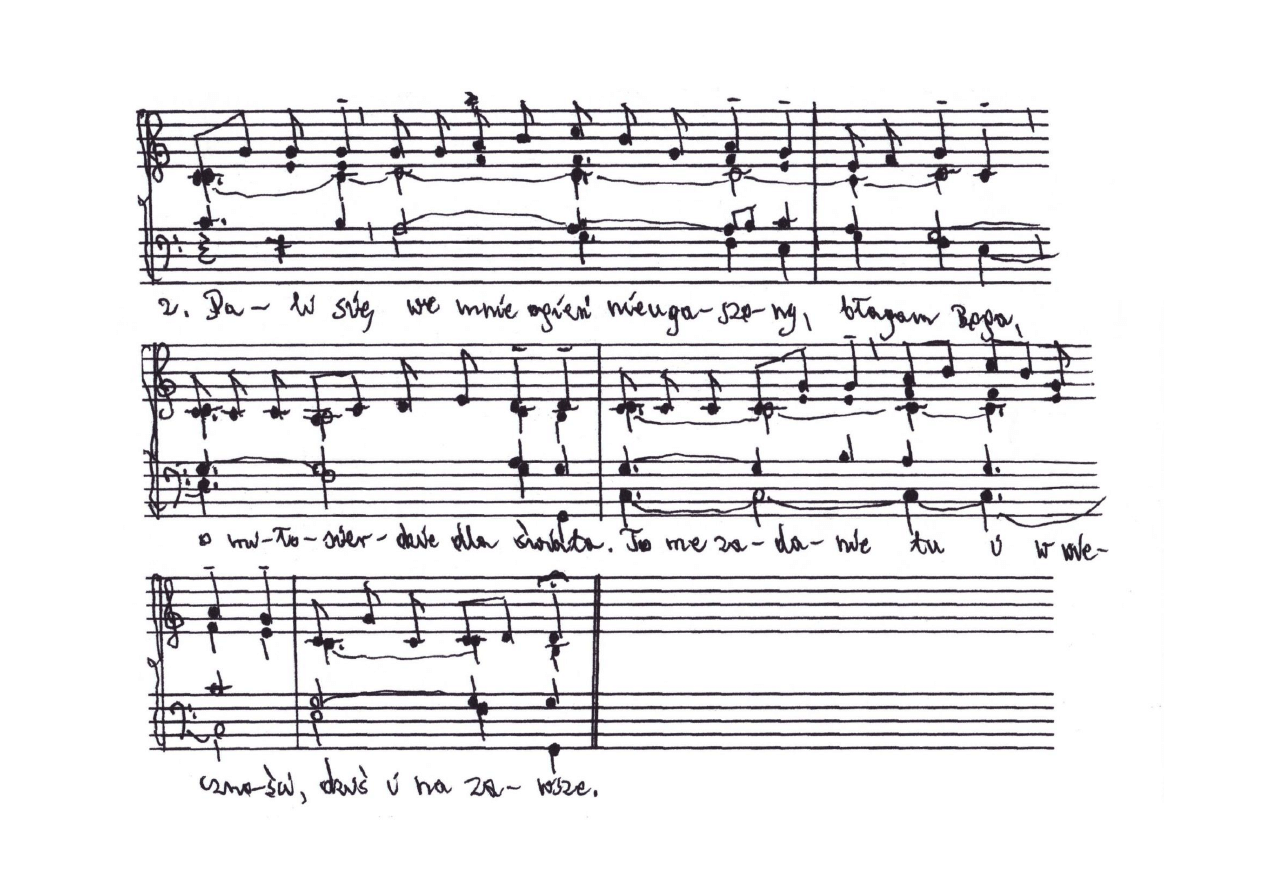 2. Pa- li się, we mnie ogień nieuga-szo-ny, błagam Boga,
o mi-ło-sier-dzie dla świata. To me za-da-nie tu i w wie-
czno-ści, dziś i na za- wsze.